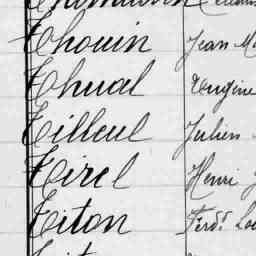 Thouin Jean
Thual Eugène
Tilleul Julien
Tirel Henri
Titon Ferd.d Lou